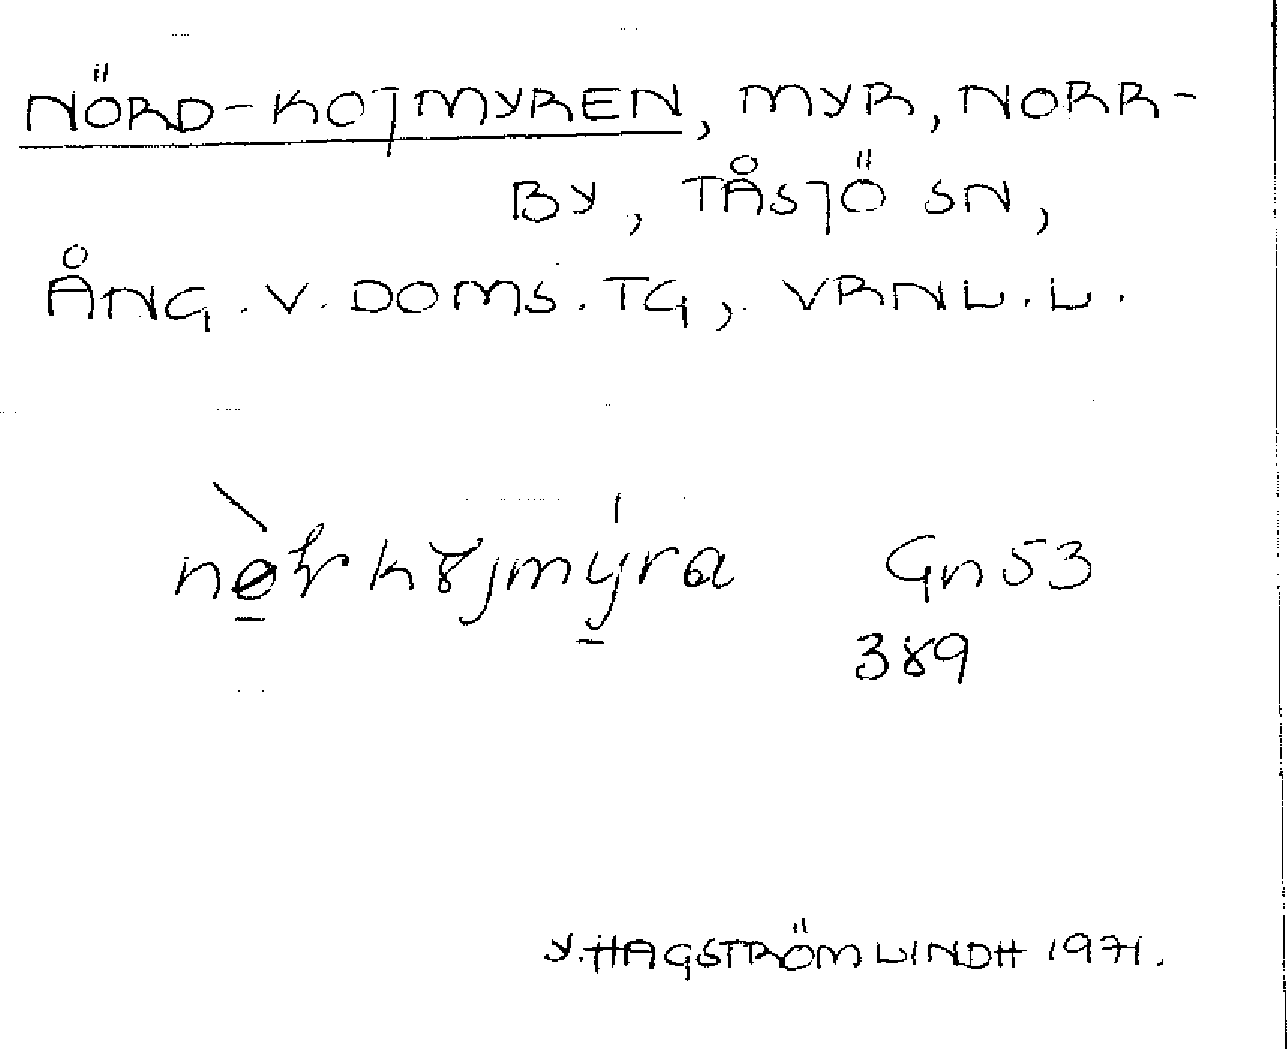 NÖRD-KOJMYREN, MYR, NORR-
BY, TÅSJÖ SN,
ÅNG. V. DOMS. TG, VRNL. L.
Gn 53
389
Y. HAGSTRÖM LINDH 1971.